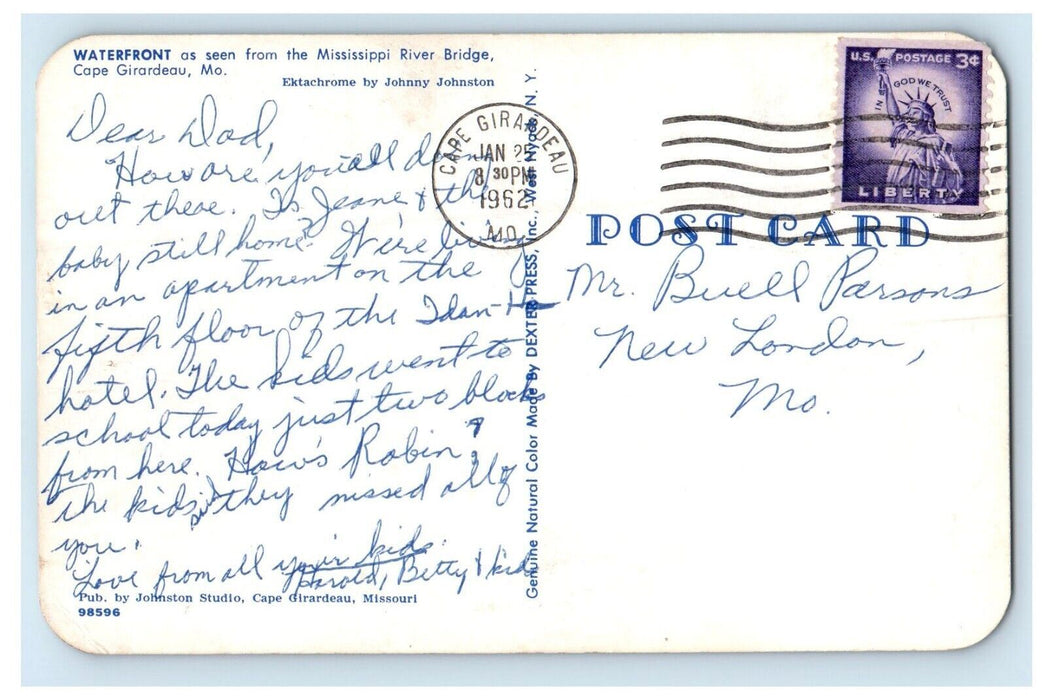 WATERFRONT as seen from the Mississippi River Bridge,
Cape Girardeau, Mo.
Ektachrome by Johnny Johnston
Dear Dad,
How are you all down
out there. Is Jeane & the
baby still home? We're living
in an apartment on the
fifth floor of the Idan-Ha
hotel. The kids went to
school today just two blocks
from here. How's Robin?
The kids said they missed all of
you.
Love from all your kids.
Harold, Betty & kids
Pub. by Johnston Studio, Cape Girardeau, Missouri
98596
Genuine Natural Color Made By DEXTER PRESS, Inc., West Nyack, N. Y.
CAPE GIRARDEAU
JAN 25
8 30 PM
1962
MO.
U.S. POSTAGE 3¢
IN GOD WE TRUST
LIBERTY
POST CARD
Mr. Buell Parsons
New London,
Mo.